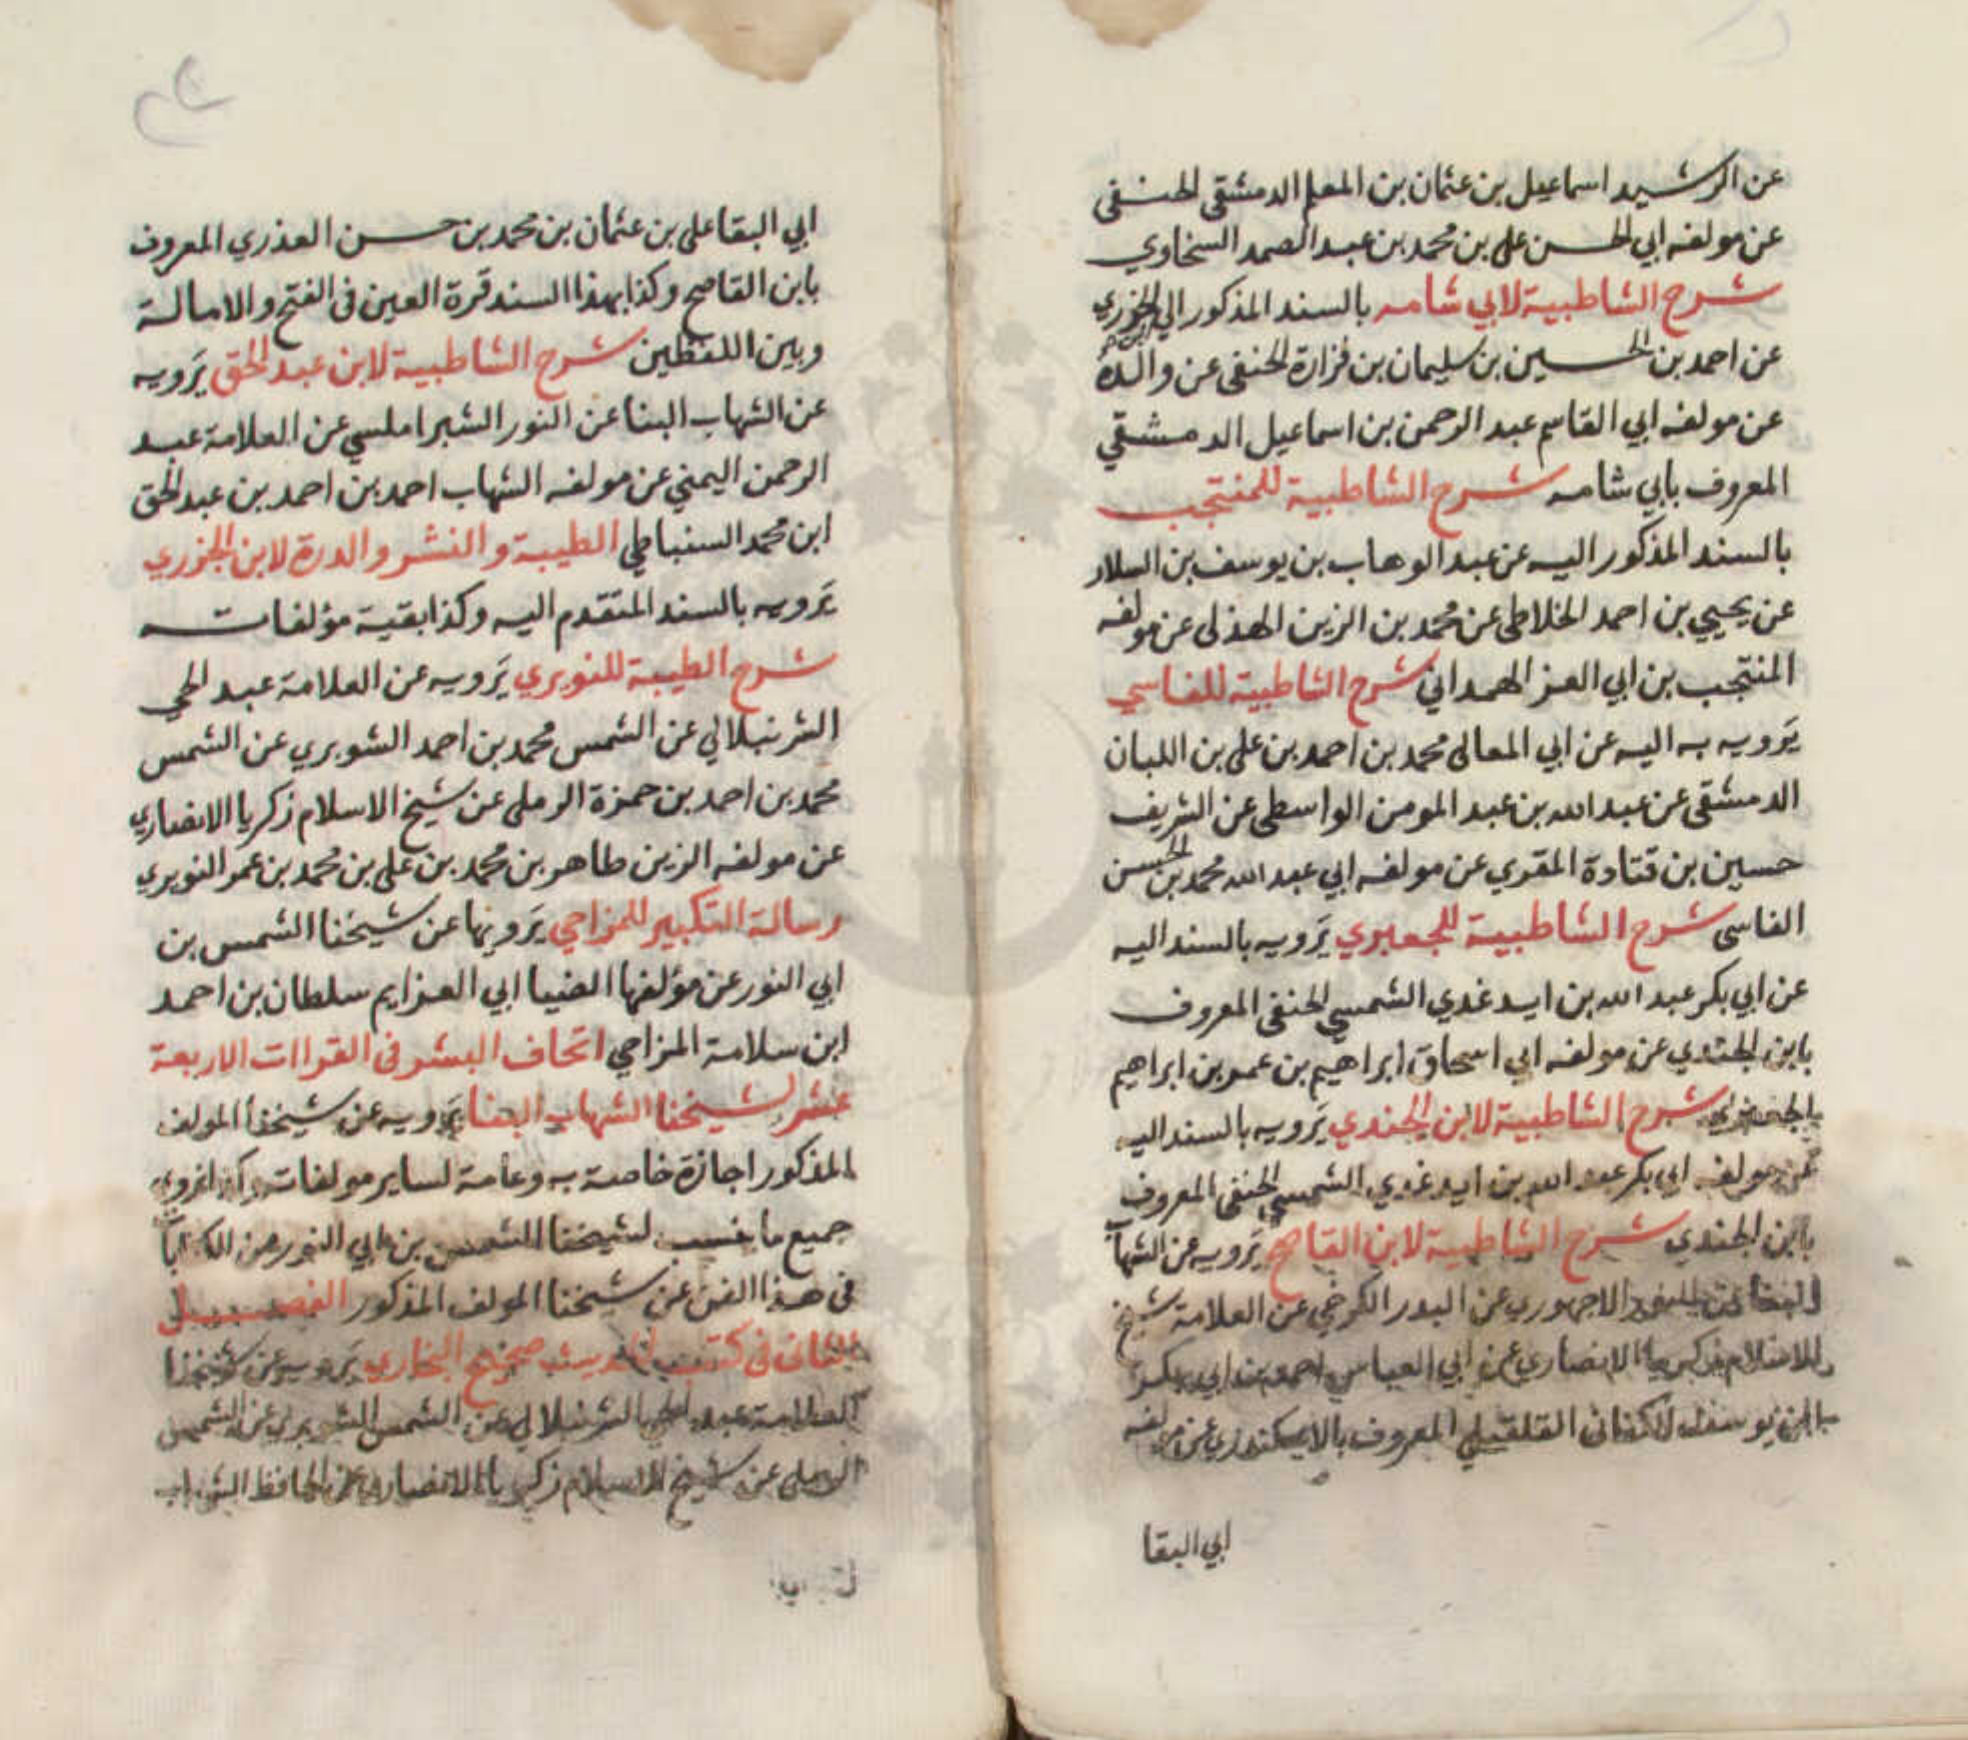 عن الرشيد اسماعيل بن عثمان بن المعلم الدمشقى الحنفى
عن مولفه ابي الحسن على بن محمد بن عبد الصمد السخاوي
شرح الشاطبية لابي شامه بالسند المذكور الي الجزري
عن احمد بن الحسين بن سليمان بن فزارة الحنفى عن والده
عن مولفه ابي القاسم عبد الرحمن بن اسماعيل الدمشقي
المعروف بابي شامه شرح الشاطبية للمنتجب
بالسند المذكور اليه عن عبد الوهاب بن يوسف بن السلار
عن يحيي بن احمد الخلاطى عن محمد بن الزين الهذلى عن مولفه
المنتجب بن ابي العز الهمداني شرح الشاطبية للفاسي
يَرويه به اليه عن ابي المعالى محمد بن احمد بن على بن اللبان
الدمشقى عن عبد الله بن عبد المومن الواسطى عن الشريف
حسين بن قتادة المقري عن مولفه ابي عبد الله محمد بن الحسن
الفاسى شرح الشاطبية للجعبري يَرويه بالسند اليه
عن ابي بكر عبد الله بن ايدغدي الشمسي الحنفى المعروف
بابن الجندي عن مولفه ابي اسحاق ابراهيم بن عمر بن ابراهيم
الجعبري شرح الشاطبية لابن الجندي يَرويه بالسند اليه
عن مولفه ابي بكر عبد الله بن ايدغدي الشمسي الحنفى المعروف
بابن الجندي شرح الشاطبية لابن القاصح يَرويه عن الشهاب
البنا عن النور الاجهوري عن البدر الكرخي عن العلامة شيخ
الاسلام زكريا الانصاري عن ابي العباس احمد بن ابي بكر
بن يوسف الكنانى القلقيلي المعروف بالاسكندري عن مولفه
ابي البقا
ابي البقا على بن عثمان بن محمد بن حسن العذري المعروف
بابن القاصح وكذا بهذا السند قرة العين فى الفتح والامالة
وبين اللفظين شرح الشاطبية لابن عبد الحق يَرويه
عن الشهاب البنا عن النور الشبراملسي عن العلامة عبد
الرحمن اليمني عن مولفه الشهاب احمد بن احمد بن عبد الحق
ابن محمد السنباطي الطيبة والنشر والدرة لابن الجزري
يَرويه بالسند المتقدم اليه وكذا بقية مؤلفاته
شرح الطيبة للنويري يَرويه عن العلامة عبد الحي
الشرنبلالي عن الشمس محمد بن احمد الشوبري عن الشمس
محمد بن احمد بن حمزة الرملى عن شيخ الاسلام زكريا الانصاري
عن مولفه الزين طاهر بن محمد بن على بن محمد بن عمر النويري
رسالة التكبير للمزاحي يَرويها عن شيخنا الشمس بن
ابي النور عن مؤلفها الضيا ابي العزايم سلطان بن احمد
ابن سلامة المزاحي اتحاف البشر فى القراات الاربعة
عشر لشيخنا الشهاب البنا يَرويه عن شيخنا المولف
المذكور اجازة خاصة به وعامة لساير مولفاته وكذا نروي
جميع ما نسب لشيخنا الشمس بن ابي النور من الكتابة
فى هذا الفن عن شيخنا المولف المذكور الفصل
الثانى فى كتب الحديث صحيح البخاري يَرويه عن شيخنا
العلامة عبد الحي الشرنبلالي عن الشمس الشوبري عن الشمس
الرملى عن شيخ الاسلام زكريا الانصاري عن الحافظ الشهاب